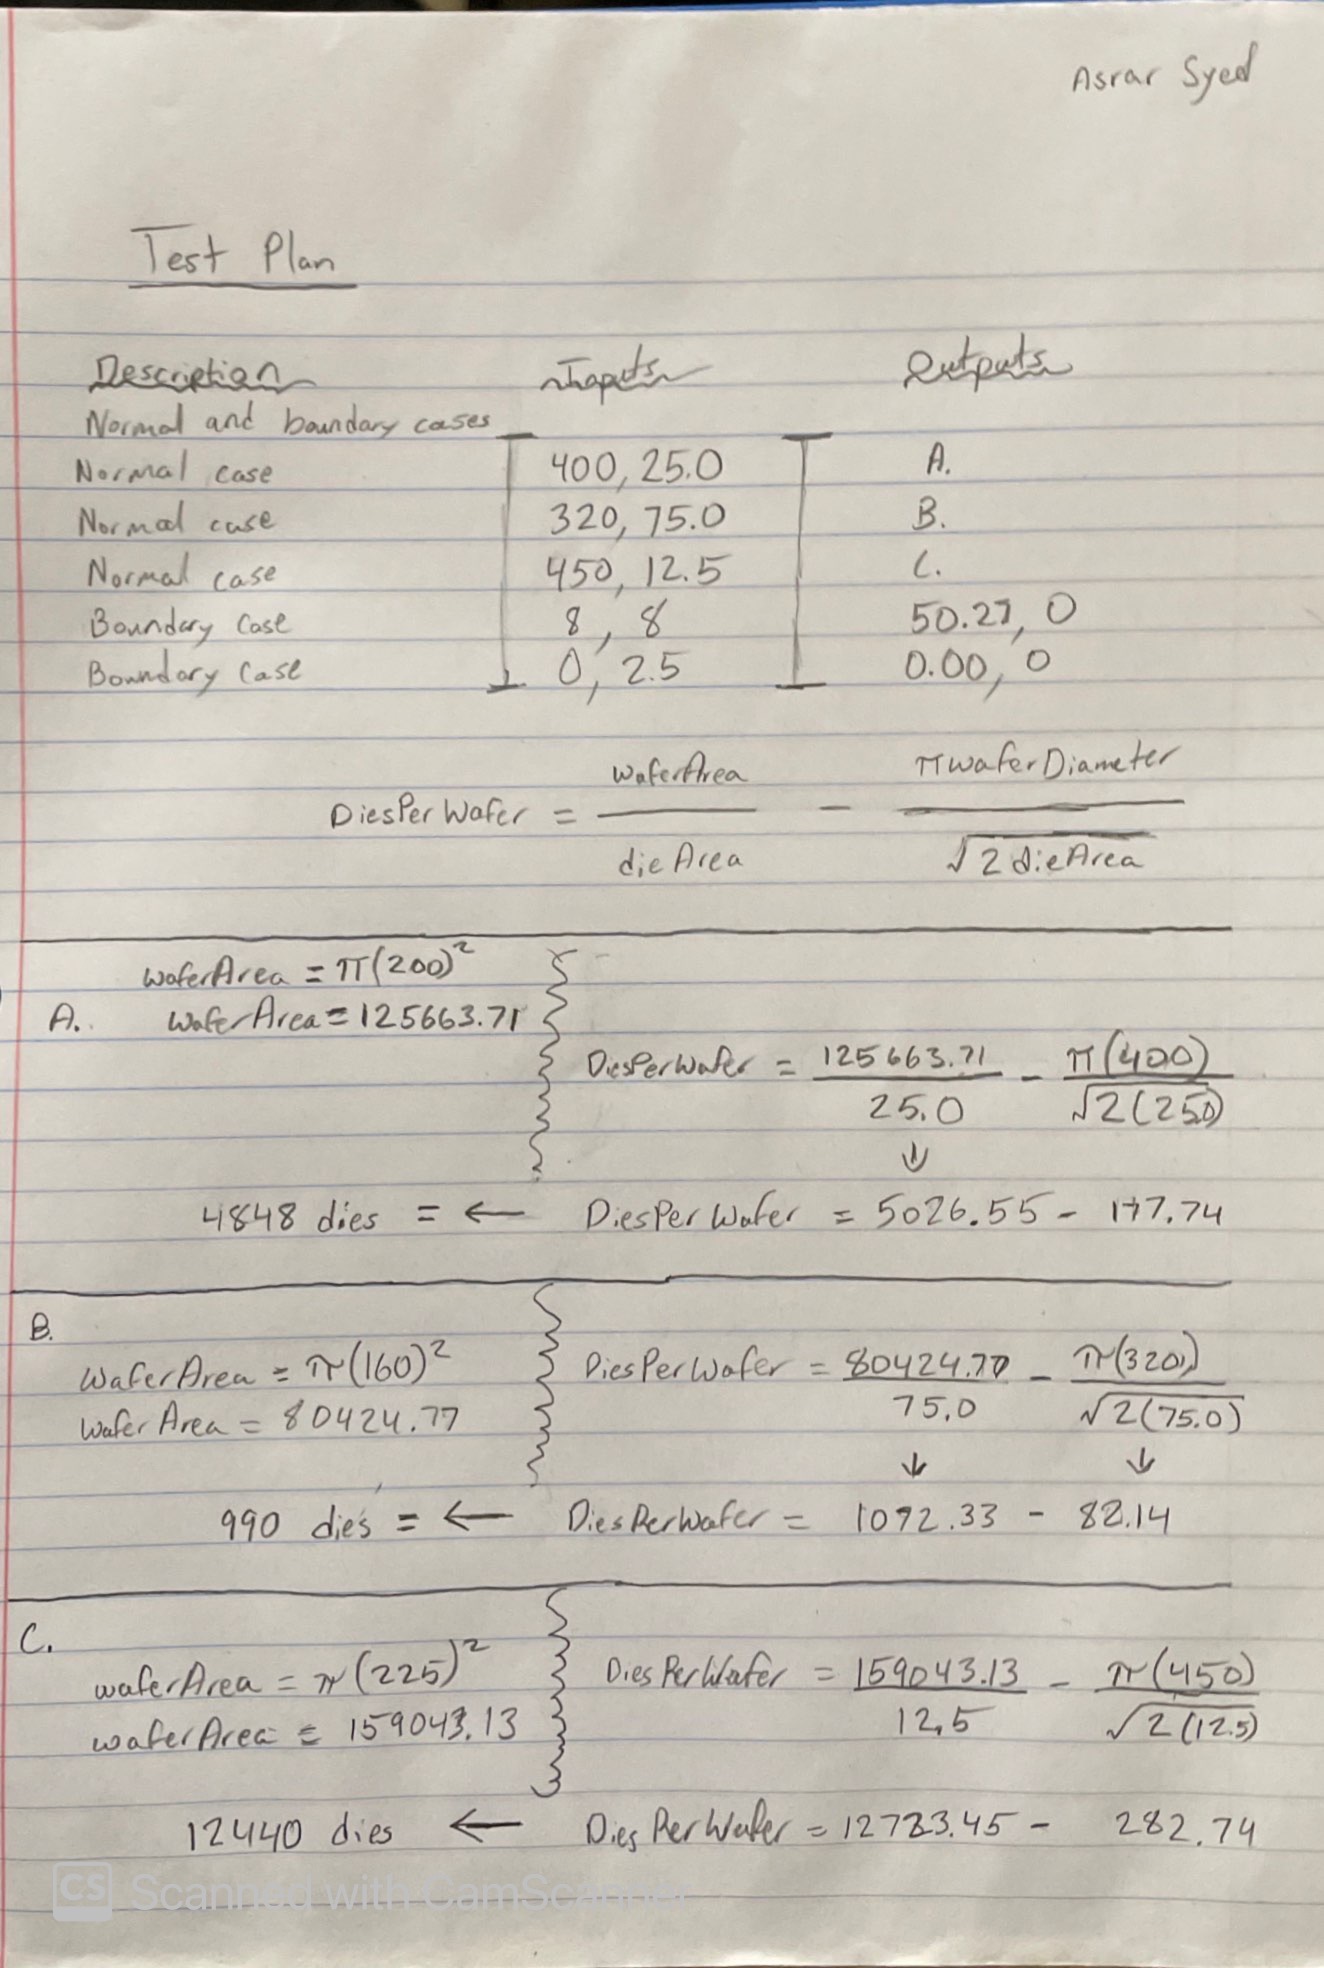 Asrar Syed
Test Plan
Description Inputs Outputs
Normal and boundary cases
Normal case 400, 25.0 A.
Normal case 320, 75.0 B.
Normal case 450, 12.5 C.
Boundary Case 8, 8 50.27, 0
Boundary Case 0, 2.5 0.00, 0
DiesPerWafer = waferArea / dieArea - πwaferDiameter / √2dieArea
waferArea = π(200)²
A. waferArea = 125663.71
DiesPerWafer = 125663.71 / 25.0 - π(400) / √2(25.0)
↓
4848 dies = ← DiesPerWafer = 5026.55 - 177.74
B.
waferArea = π(160)²
waferArea = 80424.77
DiesPerWafer = 80424.77 / 75.0 - π(320) / √2(75.0)
↓ ↓
990 dies = ← DiesPerWafer = 1072.33 - 82.14
C.
waferArea = π(225)²
waferArea = 159043.13
DiesPerWafer = 159043.13 / 12.5 - π(450) / √2(12.5)
12440 dies ← DiesPerWafer = 12723.45 - 282.74
CS Scanned with CamScanner